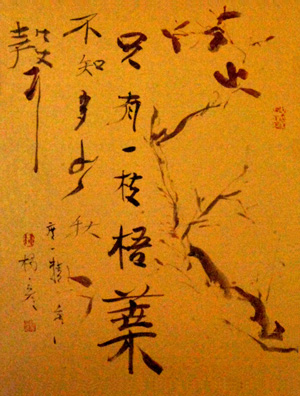 只有一枝梧葉
不知多少秋
聲